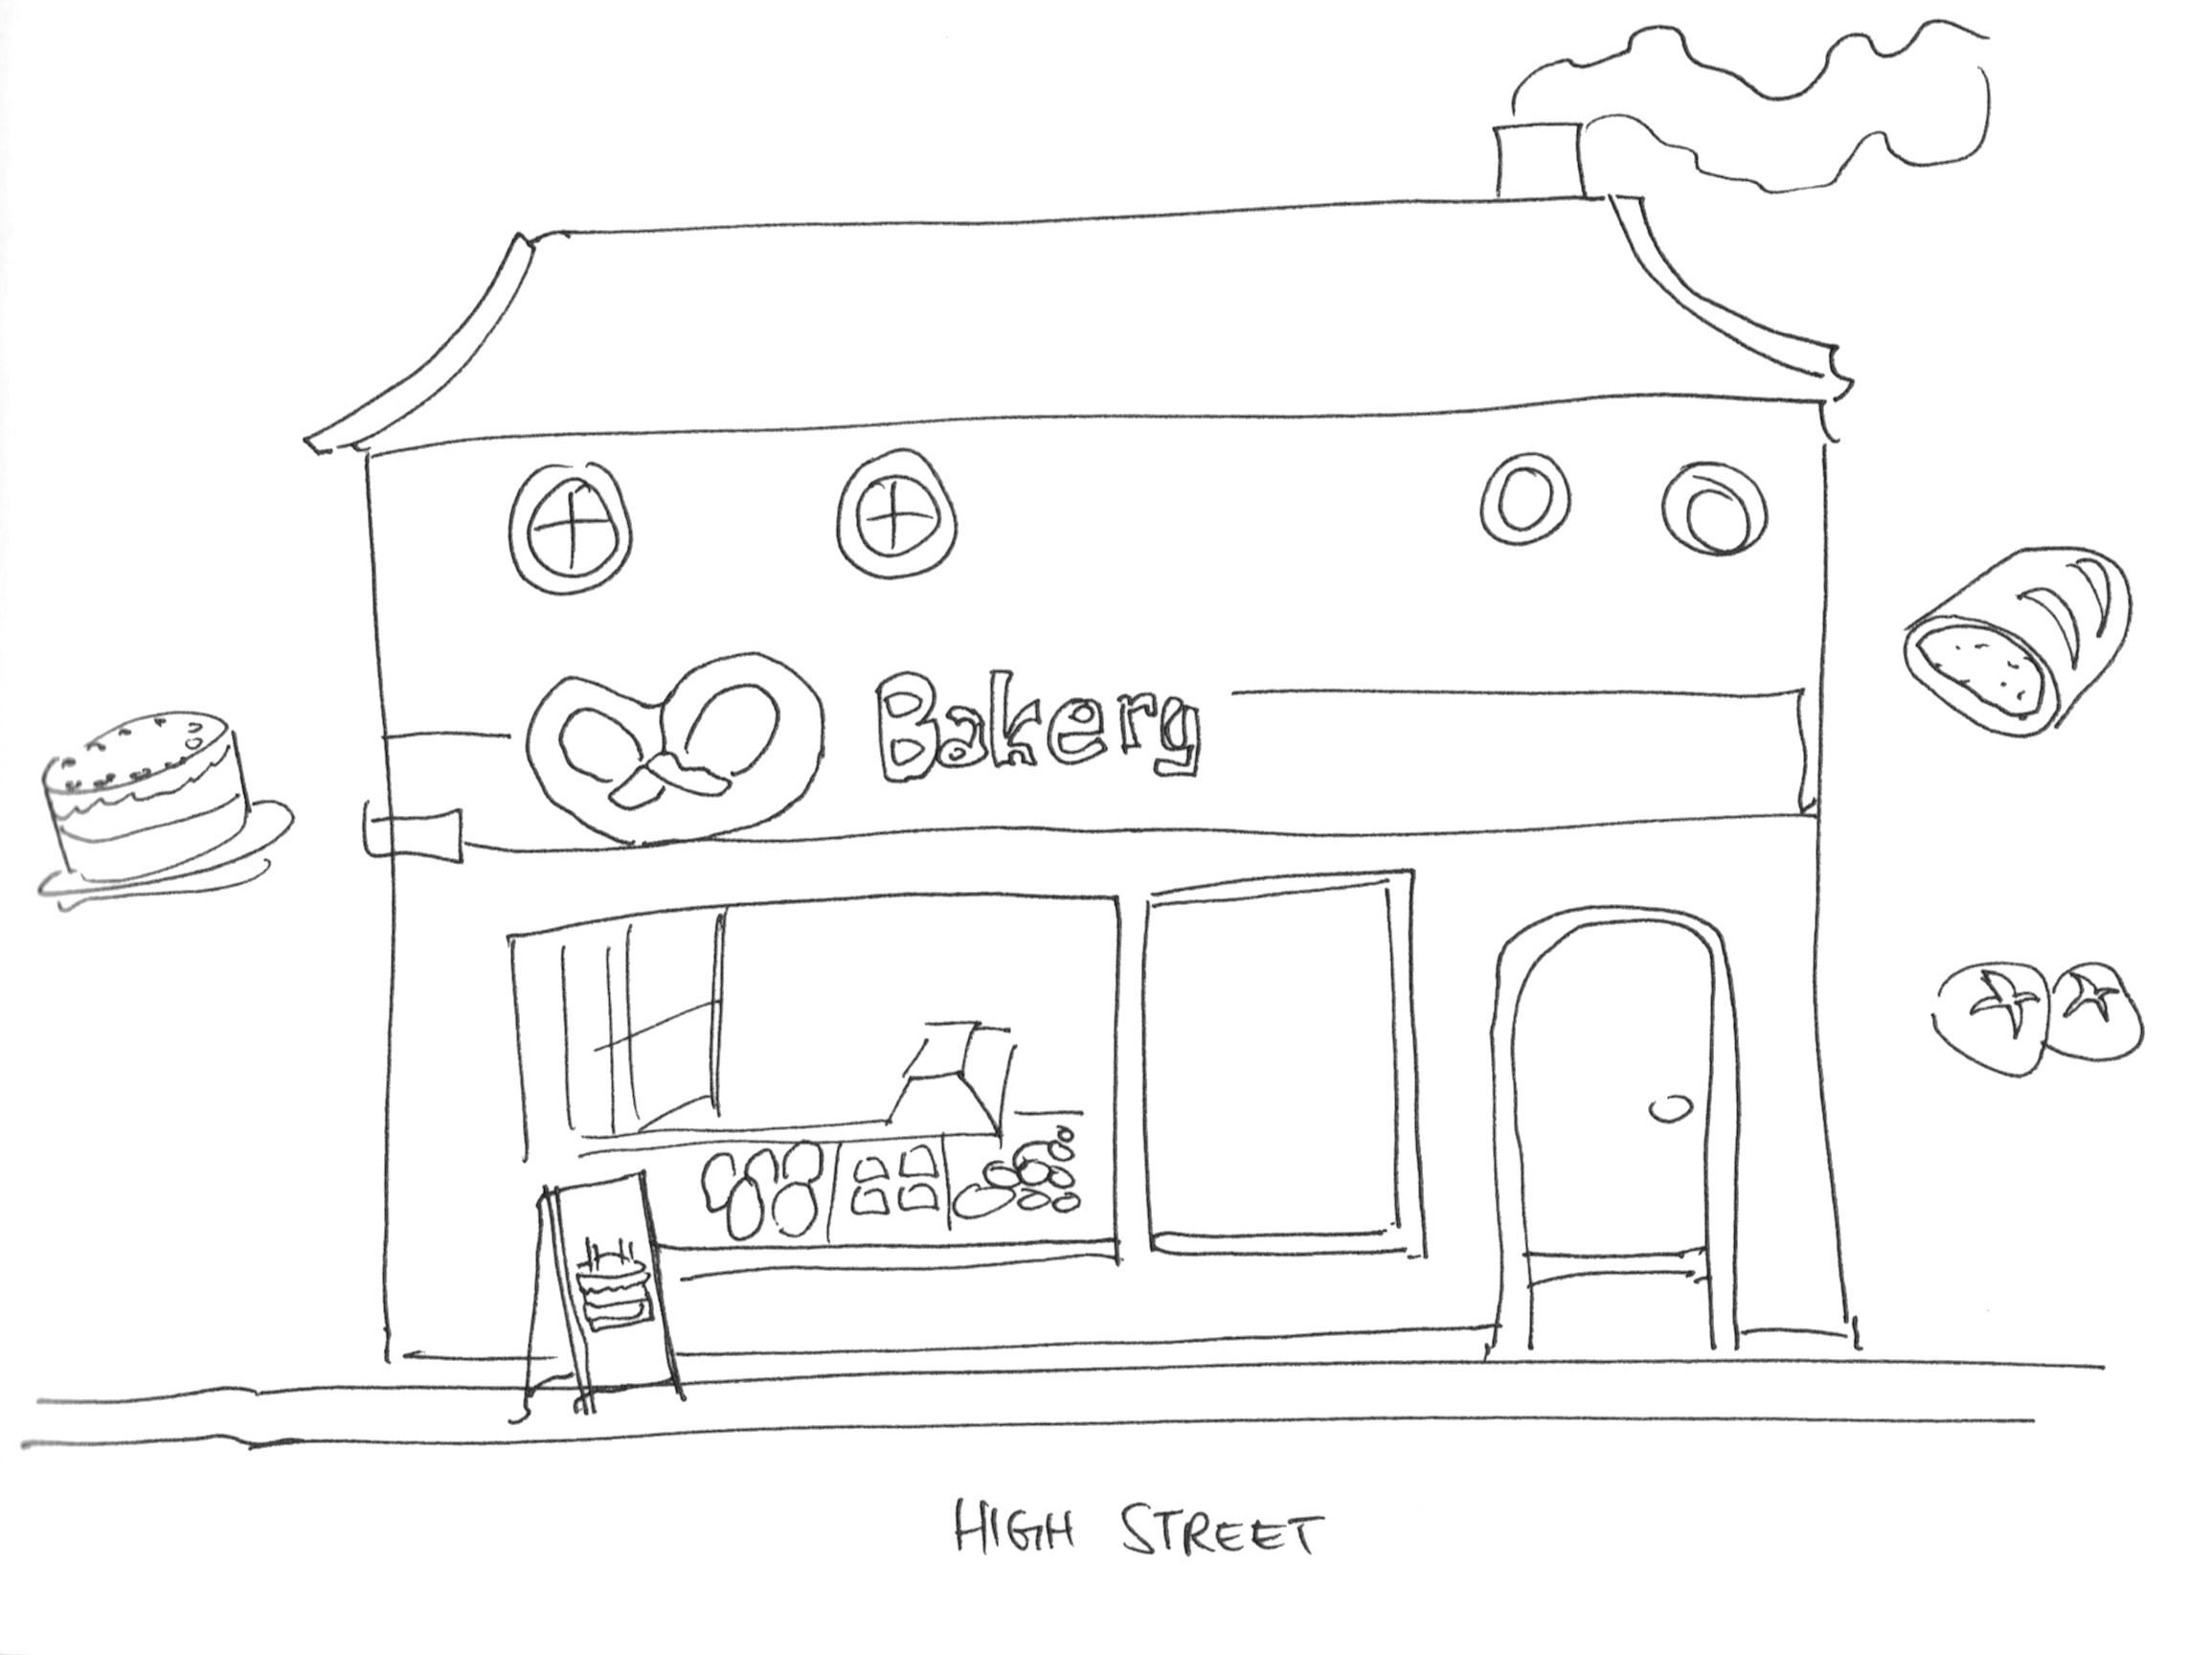 Bakery
HIGH STREET